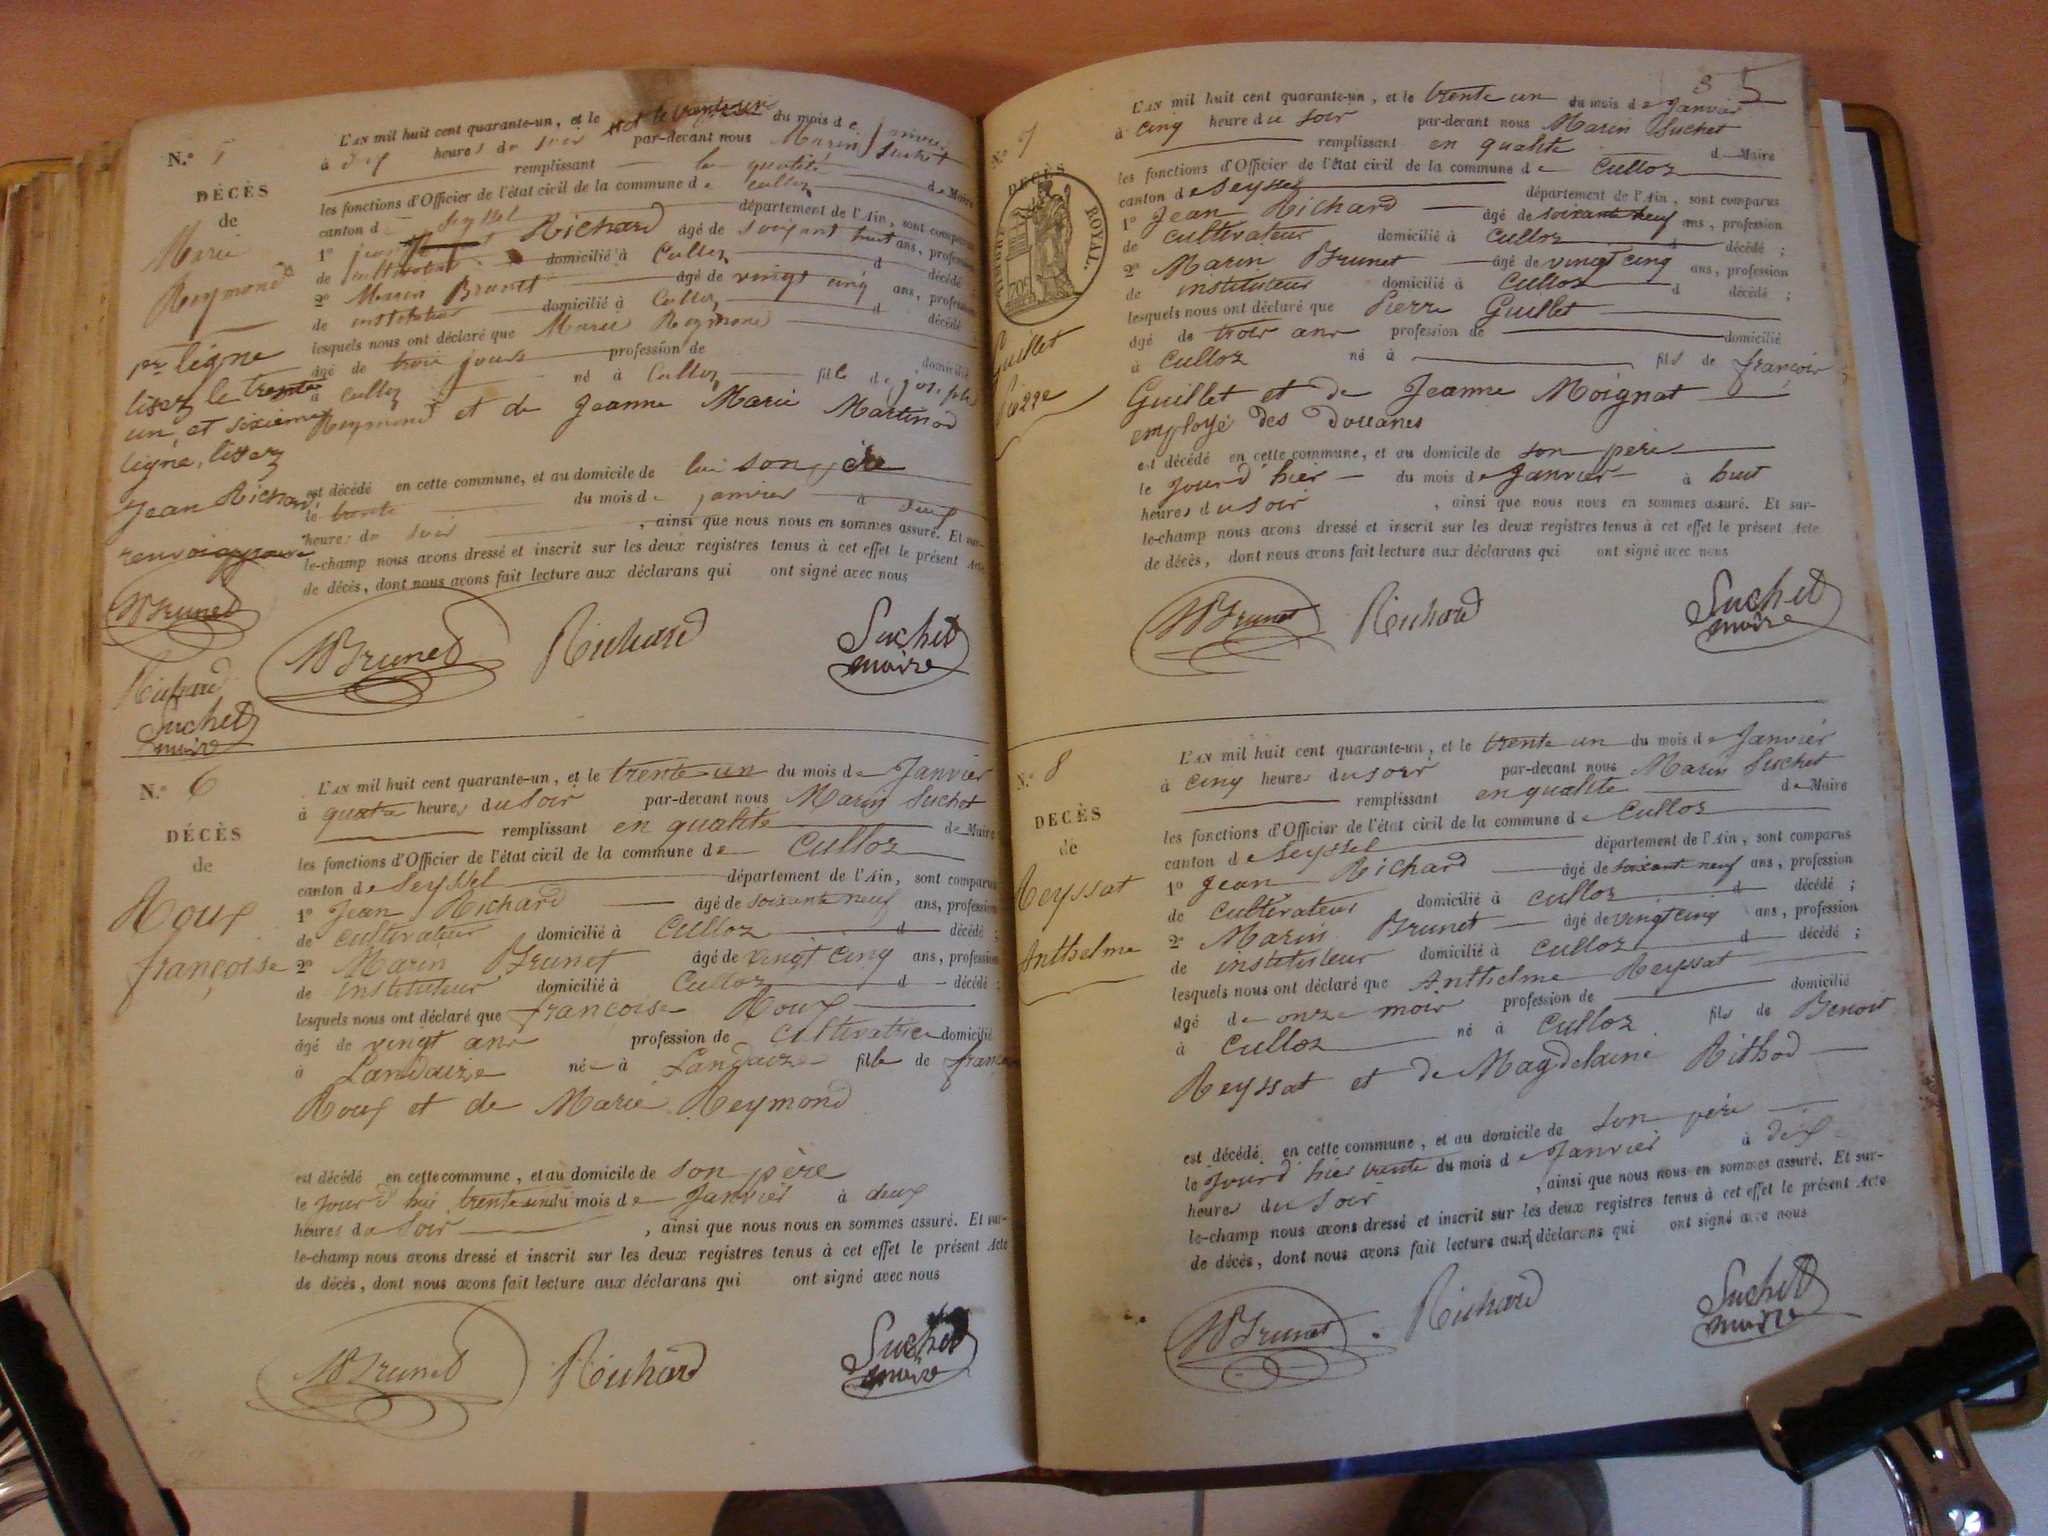 N.º 5
DÉCÈS
de
Marie
Reymond
1re ligne
lisez le trente
un, et sixième
ligne, lisez
Jean Richard
renvoi approuvé
MBrunet
Richard
Suchet
maire
L'AN mil huit cent quarante-un, et le du mois de janvier
à heures du soir par-devant nous Marin Suchet
remplissant la qualité de Maire
les fonctions d'Officier de l'état civil de la commune de culloz
canton de Seyssel département de l'Ain, sont comparus
1º Richard âgé de soixante huit ans, profession
de cultivateur domicilié à Culloz d décédé ;
2º Marin Brunet âgé de vingt cinq ans, profession
de instituteur domicilié à Culloz d décédé
lesquels nous ont déclaré que Marie Reymond
âgé de trois jours profession de domicilié
à culloz né à Culloz fille de joseph
Reymond et de Jeanne Marie Martinod
est décédé en cette commune, et au domicile de son père
le trente du mois de janvier à deux
heures du soir , ainsi que nous nous en sommes assuré. Et sur-
le-champ nous avons dressé et inscrit sur les deux registres tenus à cet effet le présent Acte
de décès, dont nous avons fait lecture aux déclarans qui ont signé avec nous
MBrunet Richard Suchet
maire
N.º 6
DÉCÈS
de
Roux
françoise
L'AN mil huit cent quarante-un, et le trente-un du mois de Janvier
à quatre heures du Soir par-devant nous Marin Suchet
remplissant en qualité de Maire
les fonctions d'Officier de l'état civil de la commune de Culloz
canton de Seyssel département de l'Ain, sont comparus
1º Jean Richard âgé de soixante neuf ans, profession
de cultivateur domicilié à Culloz d décédé ;
2º Marin Brunet âgé de vingt cinq ans, profession
de instituteur domicilié à Culloz d décédé ;
lesquels nous ont déclaré que françoise Roux
âgé de vingt ans profession de cultivatrice domicilié
à Landaize née à Landaize fille de françois
Roux et de Marie Reymond
est décédé en cette commune, et au domicile de son père
le jour d'hui trente un du mois de Janvier à deux
heures du Soir , ainsi que nous nous en sommes assuré. Et sur-
le-champ nous avons dressé et inscrit sur les deux registres tenus à cet effet le présent Acte
de décès, dont nous avons fait lecture aux déclarans qui ont signé avec nous
MBrunet Richard Suchet
maire
3 5
N.º 7
DÉCÈS
TIMBRE ROYAL.
Guillet
Pierre
L'AN mil huit cent quarante-un, et le trente un du mois de Janvier
à cinq heure du soir par-devant nous Marin Suchet
remplissant en qualité d Maire
les fonctions d'Officier de l'état civil de la commune de Culloz
canton de Seyssel département de l'Ain, sont comparus
1º Jean Richard âgé de soixante neuf ans, profession
de cultivateur domicilié à Culloz d décédé ;
2º Marin Brunet âgé de vingt cinq ans, profession
de instituteur domicilié à Culloz d décédé ;
lesquels nous ont déclaré que Pierre Guillet
âgé de trois ans profession de domicilié
à Culloz né à fils de françois
Guillet et de Jeanne Moignat
employé des Douanes
est décédé en cette commune, et au domicile de son père
le jourd'hier du mois de Janvier à huit
heures du soir , ainsi que nous nous en sommes assuré. Et sur-
le-champ nous avons dressé et inscrit sur les deux registres tenus à cet effet le présent Acte
de décès, dont nous avons fait lecture aux déclarans qui ont signé avec nous
MBrunet Richard Suchet
maire
N.º 8
DÉCÈS
de
Reyssat
Anthelme
L'AN mil huit cent quarante-un, et le trente un du mois de Janvier
à cinq heures du soir par-devant nous Marin Suchet
remplissant en qualité de Maire
les fonctions d'Officier de l'état civil de la commune de Culloz
canton de Seyssel département de l'Ain, sont comparus
1º Jean Richard âgé de soixante neuf ans, profession
de cultivateur domicilié à culloz d décédé ;
2º Marin Brunet âgé de vingt cinq ans, profession
de instituteur domicilié à culloz d décédé ;
lesquels nous ont déclaré que Anthelme Reyssat
âgé de onze mois profession de domicilié
à Culloz né à Culloz fils de Benoit
Reyssat et de Magdelaine Rithod
est décédé en cette commune, et au domicile de son père
le jourd'hier trente du mois de Janvier à dix
heures du soir , ainsi que nous nous en sommes assuré. Et sur-
le-champ nous avons dressé et inscrit sur les deux registres tenus à cet effet le présent Acte
de décès, dont nous avons fait lecture aux déclarans qui ont signé avec nous
MBrunet Richard Suchet
maire